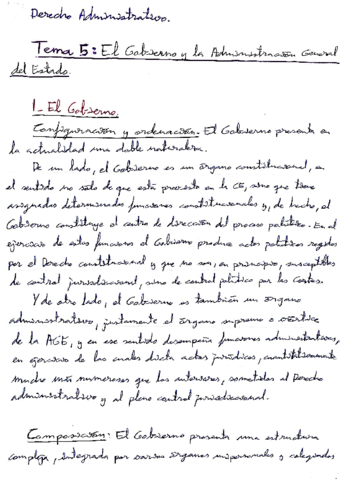 Derecho Administrativo.
Tema 5: El Gobierno y la Administración General
del Estado.
1- El Gobierno.
Configuración y ordenación. El Gobierno presenta en
la actualidad una doble naturaleza.
De un lado, el Gobierno es un órgano constitucional, en
el sentido no solo de que está previsto en la CE, sino que tiene
asignados determinadas funciones constitucionales y, de hecho, el
Gobierno constituye el centro de dirección del proceso político. En el
ejercicio de estas funciones el Gobierno produce actos políticos regidos
por el Derecho constitucional y que no son, en principio, susceptibles
de control jurisdiccional, sino de control político por las Cortes.
Y de otro lado, el Gobierno es también un órgano
administrativo, justamente el órgano supremo o vértice
de la AGE, y en ese sentido desempeña funciones administrativas,
en ejercicio de las cuales dicta actos jurídicos, cuantitativamente
mucho más numerosos que los anteriores, sometidos al Derecho
administrativo y al pleno control jurisdiccional.
Composición: El Gobierno presenta una estructura
compleja, integrada por varios órganos unipersonales y colegiados